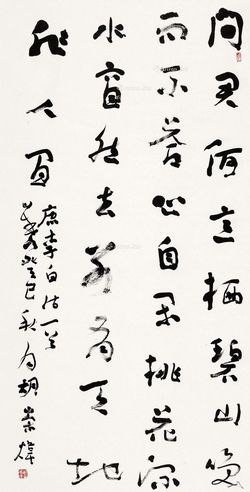 問君何意栖碧山笑
而不答心自闲桃花流
水窅然去别有天地
非人间
唐李白诗一首
癸巳秋月胡崇煒